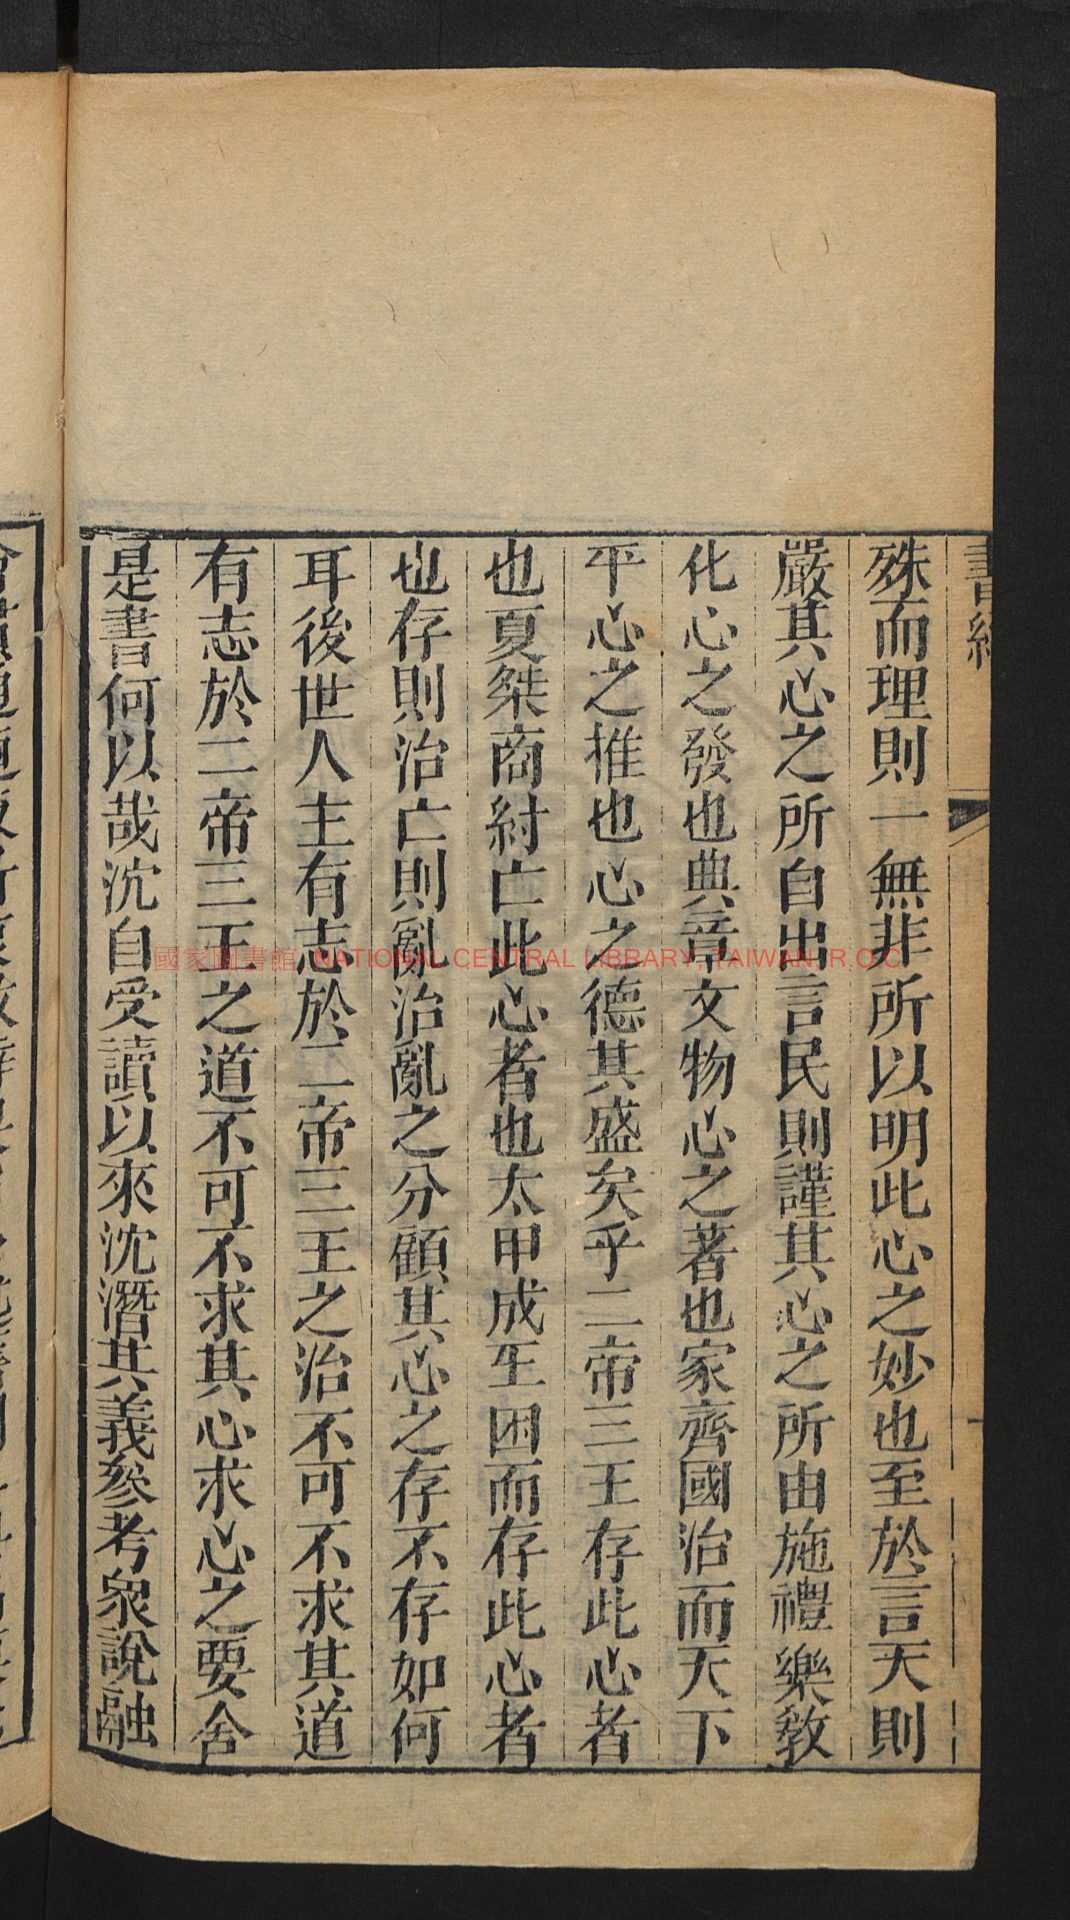 書經
殊而理則一無非所以明此心之妙也至於言天則
嚴其心之所自出言民則謹其心之所由施禮樂教
化心之發也典章文物心之著也家齊國治而天下
平心之推也心之德其盛矣乎二帝三王存此心者
也夏桀商紂亡此心者也太甲成王困而存此心者
也存則治亡則亂治亂之分顧其心之存不存如何
耳後世人主有志於二帝三王之治不可不求其道
有志於二帝三王之道不可不求其心求心之要舍
是書何以哉沈自受讀以來沈潛其義參考衆說融
國家圖書館 NATIONAL CENTRAL LIBRARY, TAIWAN, R.O.C